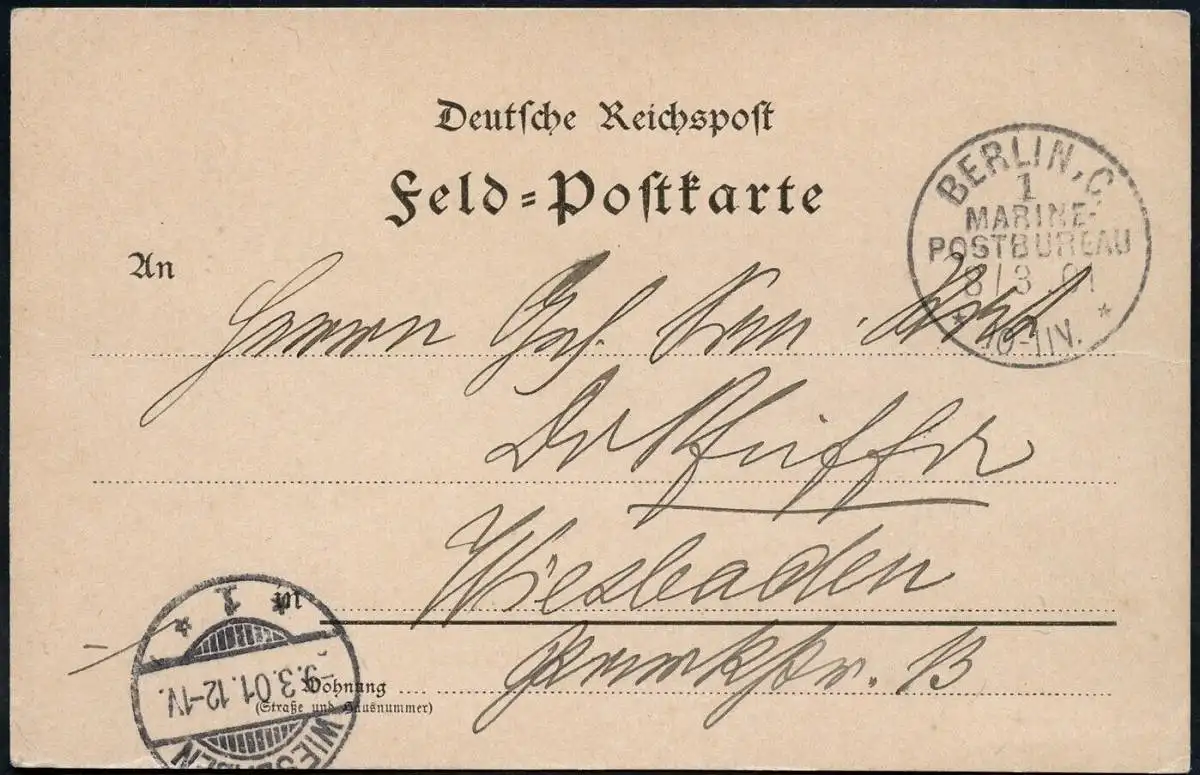 Deutsche Reichspost
Feld=Postkarte
BERLIN, C.
1
MARINE-
POSTBUREAU
8/3.01
10-11V.
An
Herrn Geh.
Dr
Wiesbaden
in
1
9.3.01.12-1V.
WIESBADEN
Wohnung
(Straße und Hausnummer)